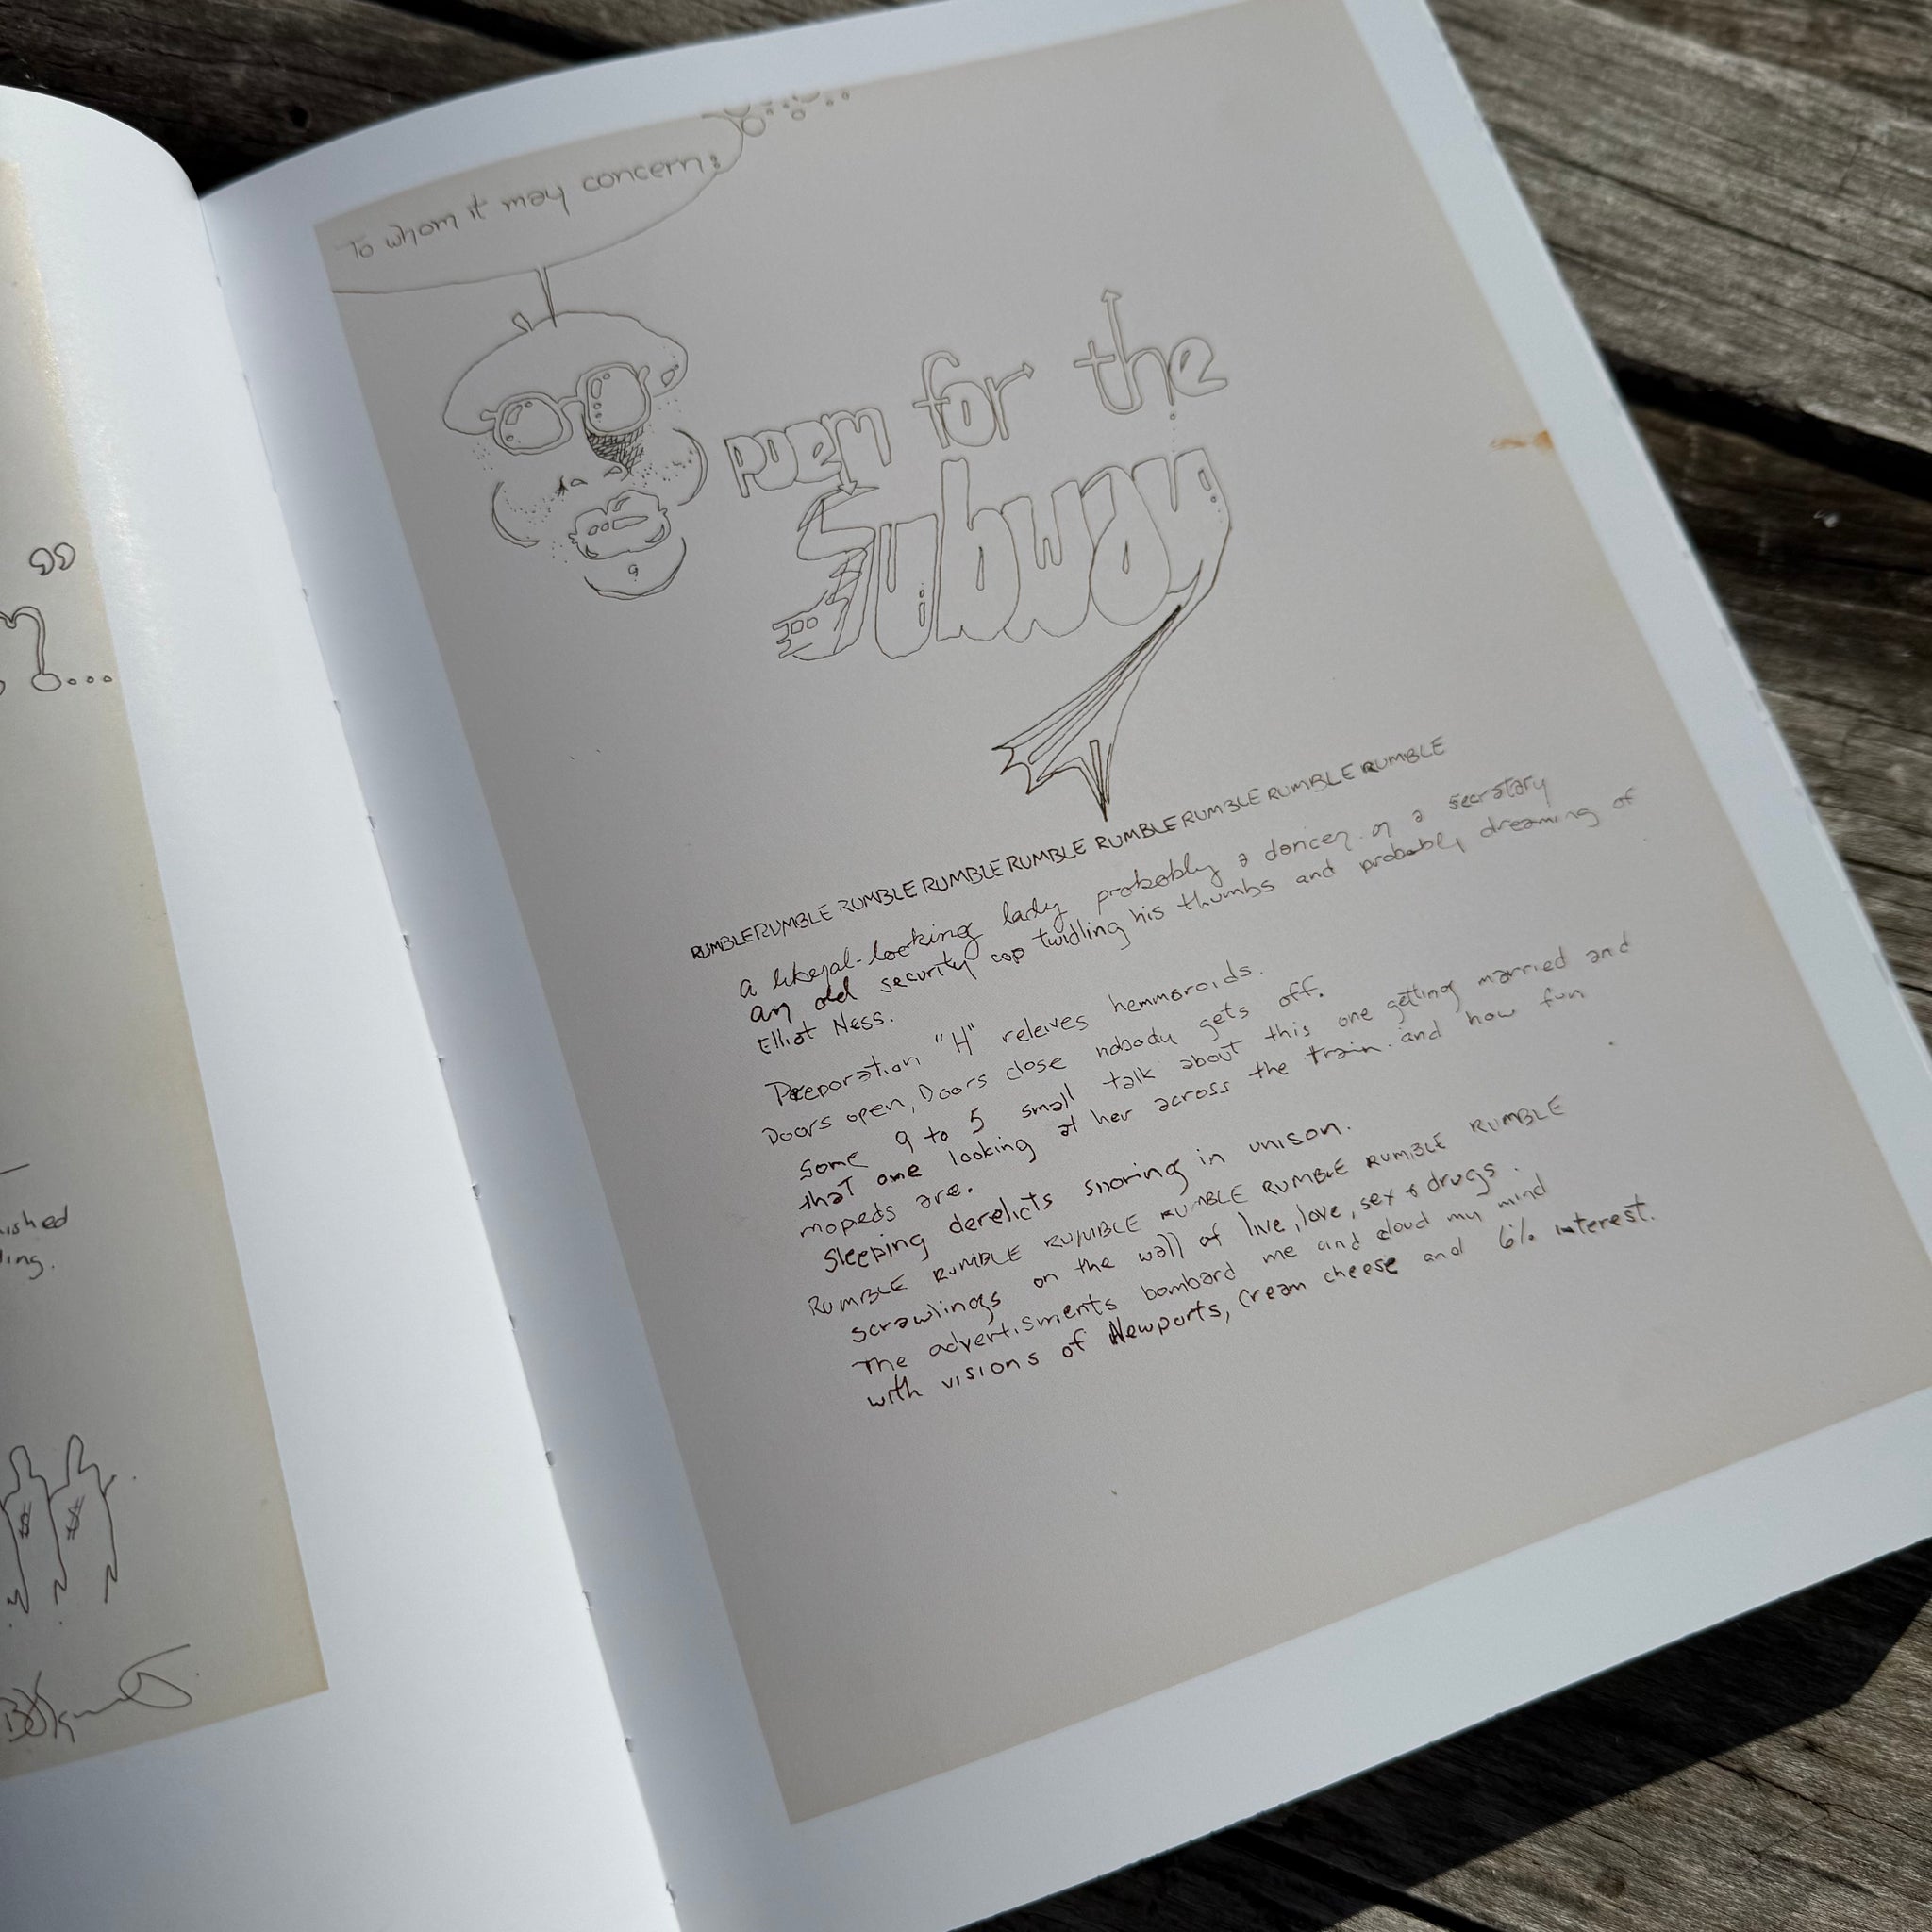 ished
ing.
To whom it may concern:
Poem for the
Subway
RUMBLE RUMBLE RUMBLE RUMBLE RUMBLE RUMBLE RUMBLE RUMBLE RUMBLE
a liberal-looking lady probably a dancer or a secratary
an old security cop twidling his thumbs and probably dreaming of
Elliot Ness.
Preporation "H" releives hemmoroids.
Doors open, Doors close nobody gets off.
Some 9 to 5 small talk about this one getting married and
that one looking at her across the train. and how fun
mopeds are.
Sleeping derelicts snoring in unison.
RUMBLE RUMBLE RUMBLE RUMBLE RUMBLE RUMBLE RUMBLE
scrawlings on the wall of live, love, sex & drugs.
The advertisments bombard me and cloud my mind
with visions of Newports, cream cheese and 6% interest.